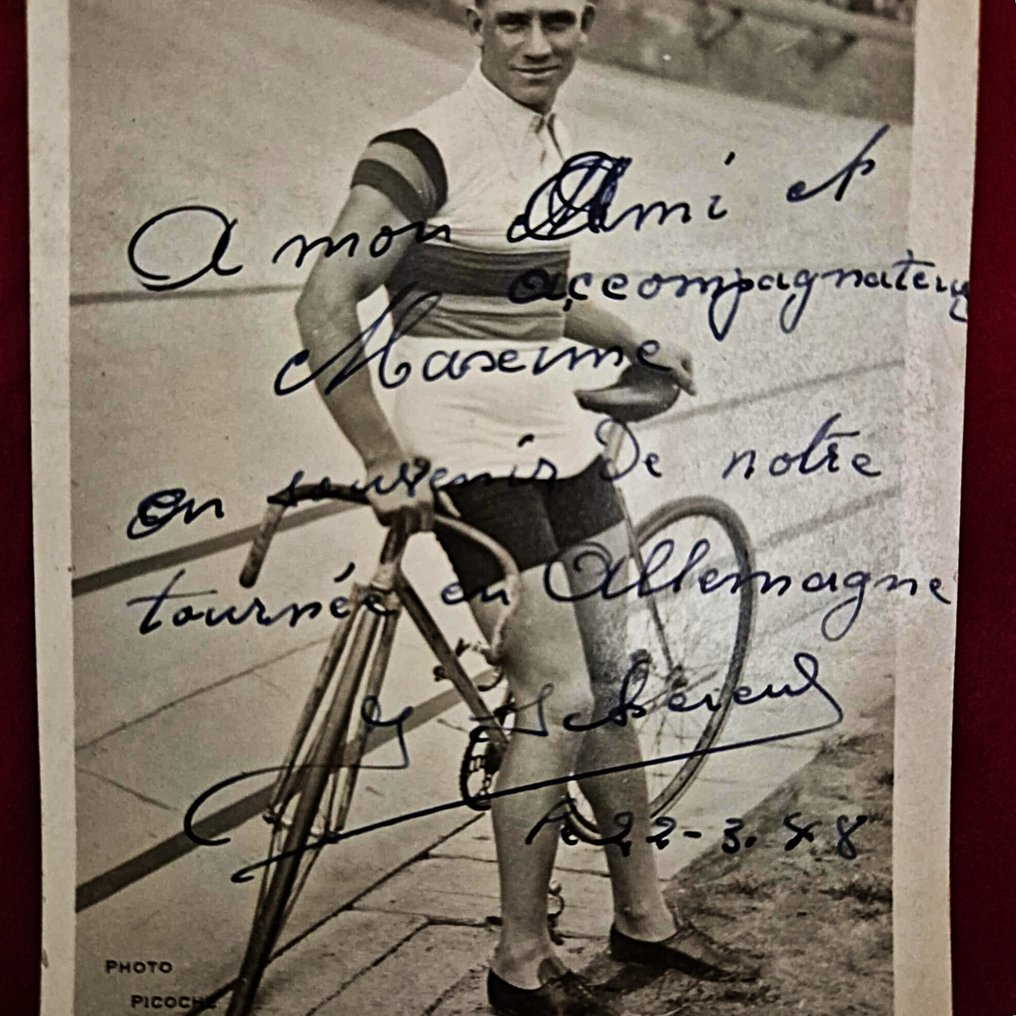 A mon Ami et
accompagnateur
Maxeime
en souvenir de notre
tournée en Allemagne
J Scherens
le 22-3.48
PHOTO
PICOCHE